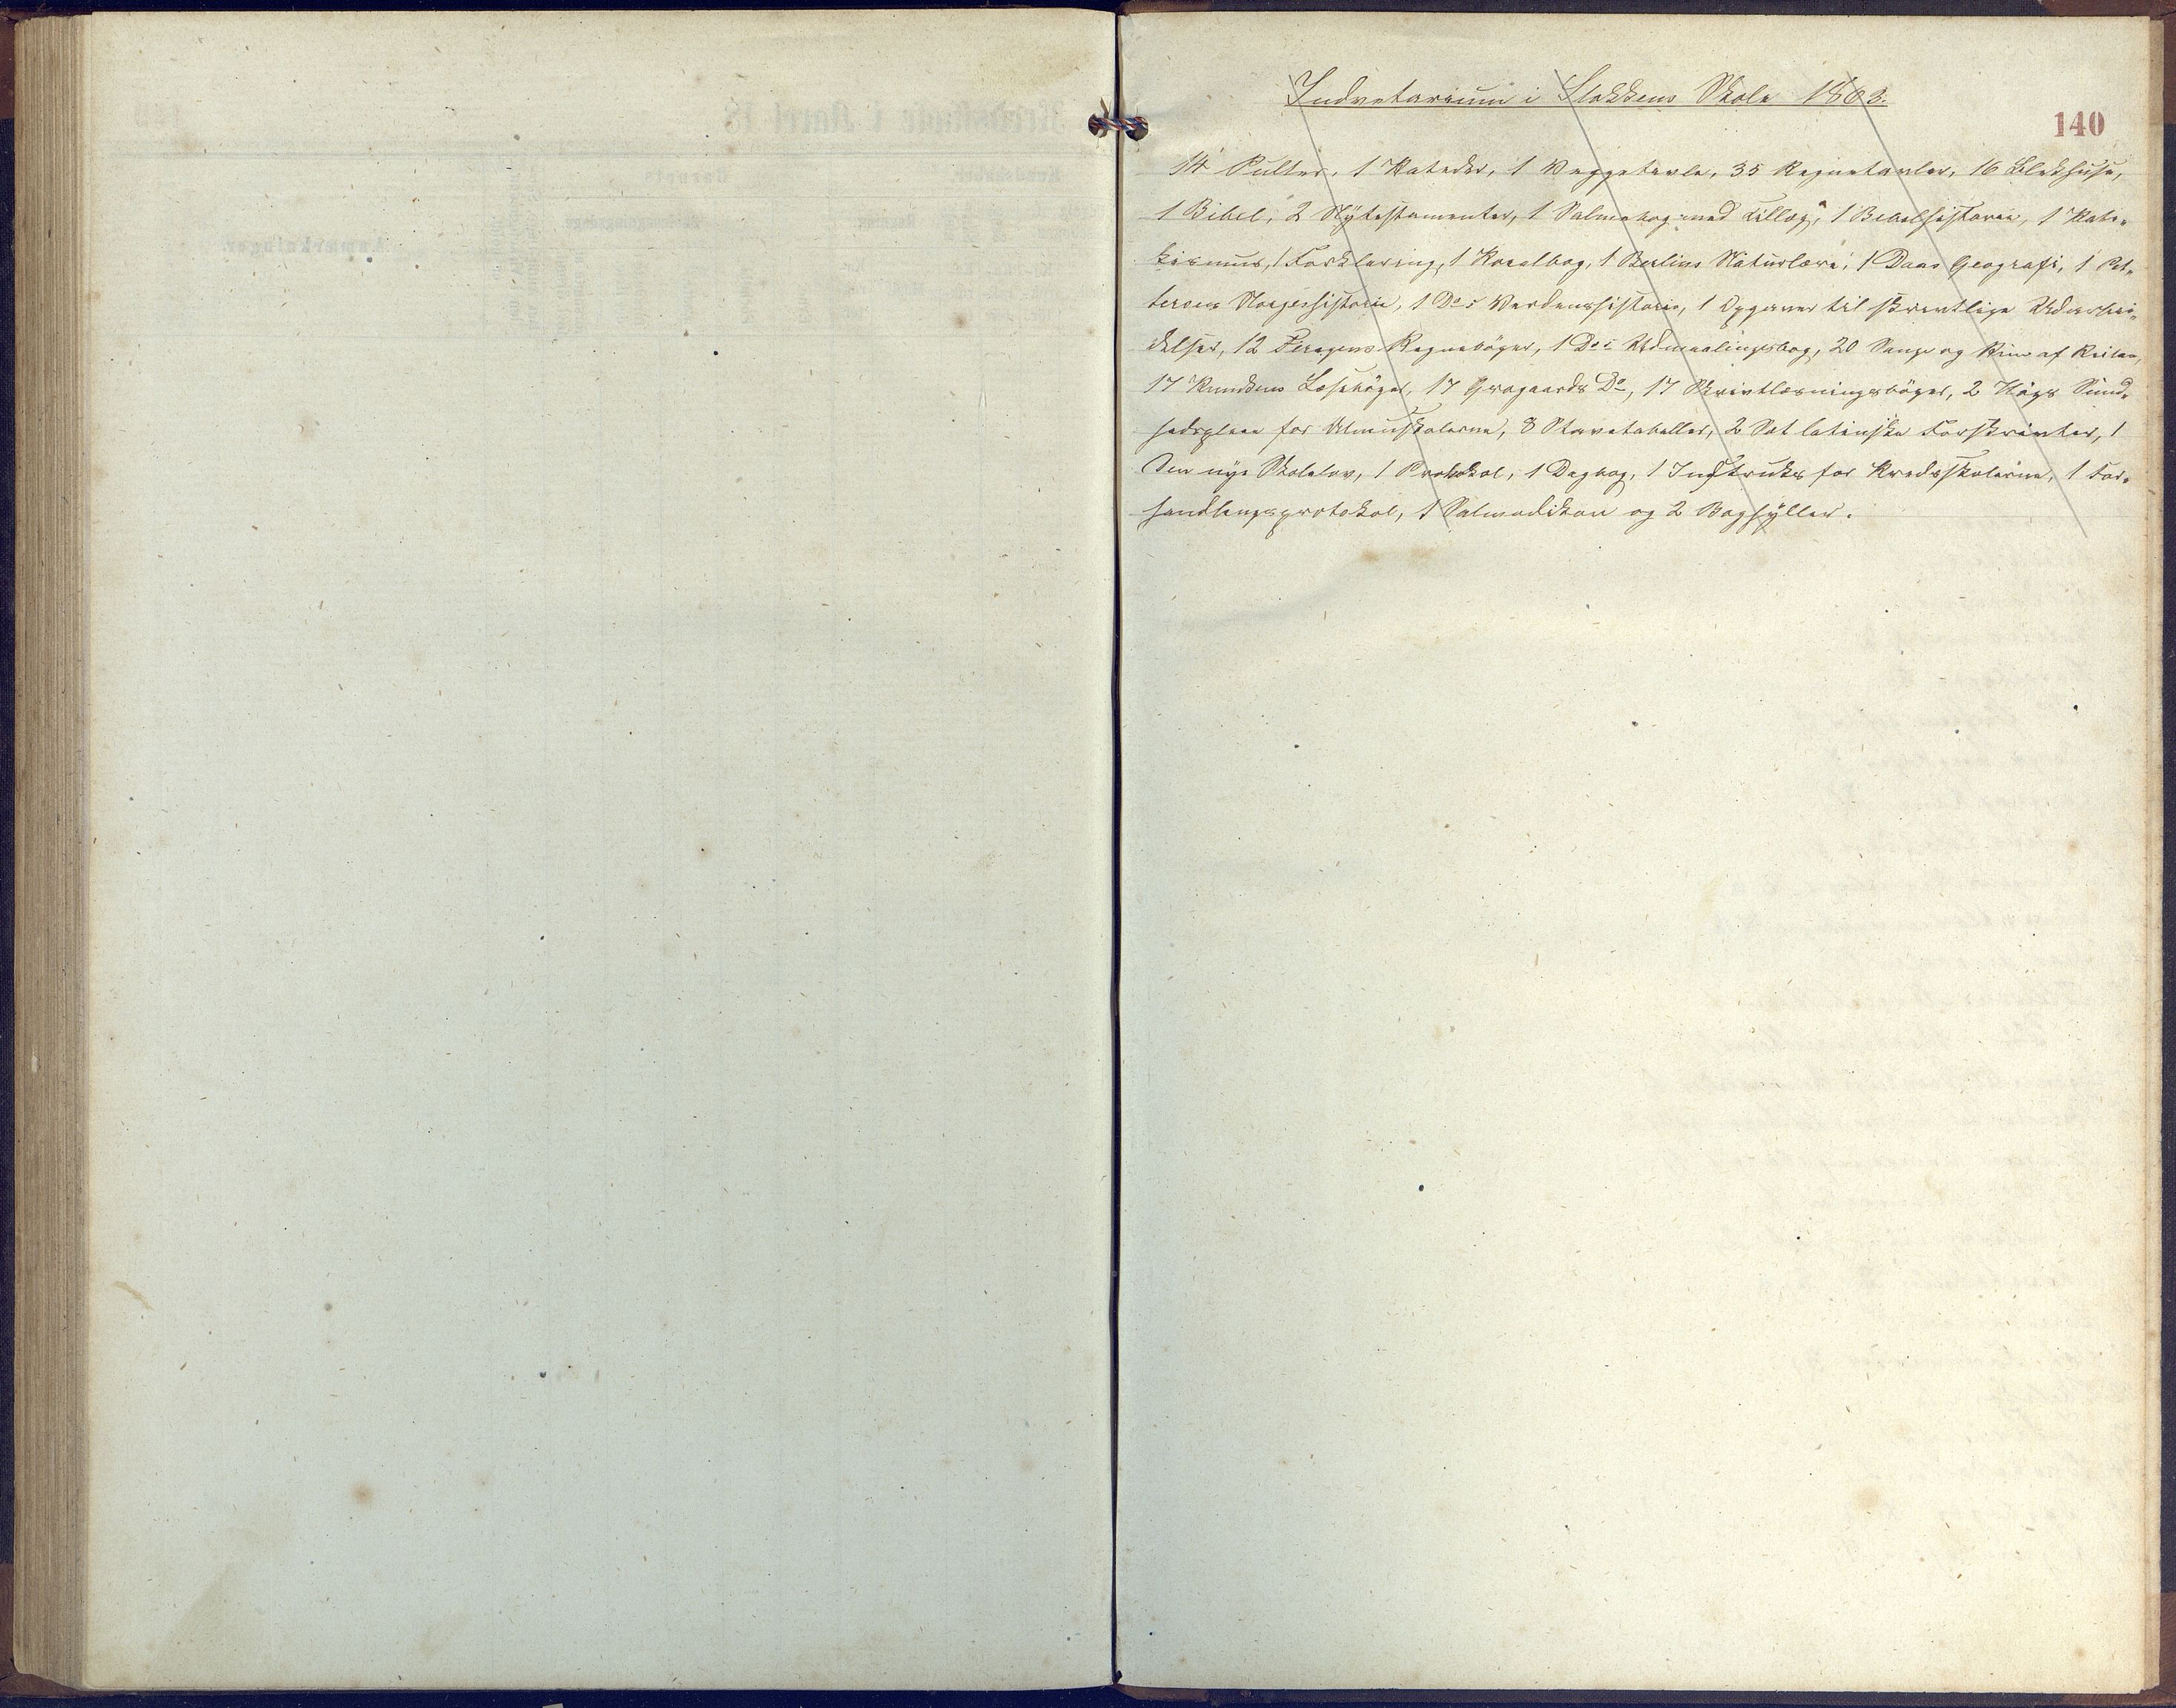 Indvetarium i Flokkens Skole 1863.
140
14 Pulter, 1 Kateder, 1 Veggetavle, 35 Regnetavler, 16 Blekhuse,
1 Bibel, 2 Nytestamenter, 1 Salmebog med Tillæg, 1 Bibelhistorie, 1 Kate-
kismus, 1 Forklaring, 1 Koralbog, 1 Berlins Naturlære, 1 Daas Geografi, 1 Pet-
tersens Norgeshistorie, 1 Do s Verdenshistorie, 1 Opgaver til skrivtlige Udarbei-
delser, 12 Feragens Regnebøger, 1 Do s Udmaalingsbog, 20 Sange og Rim af
17 Knudsens Læsebøger, 17 Grøgaards Do, 17 Skrivtlæsningsbøger, 2 Sund-
hedspleie for Almuskolerne, 8 Stavetabeller, 2 Sæt latinske Forskrivter, 1
Den nye Skolelov, 1 Protokol, 1 Dagbog, 1 Instruks for Kredsskolerne, 1 For-
handlingsprotokol, 1 Salmodikon og 2 Boghyller.